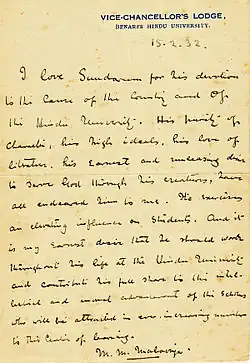 VICE-CHANCELLOR'S LODGE,
BENARES HINDU UNIVERSITY.
15.2.32.
I love Sundaram for his devotion
to the cause of the country and of
the Hindu University. His purity of
character, his high ideals, his love of
literature, his earnest and unceasing desire
to serve God through his creatures, have
all endeared him to me. He exercises
an elevating influence on students. And it
is my earnest desire that he should work
throughout his life at the Hindu University
and contribute his full share to the intel-
lectual and moral advancement of the scholars
who will be attracted in ever increasing numbers
to this centre of learning.
M. M. Malaviya